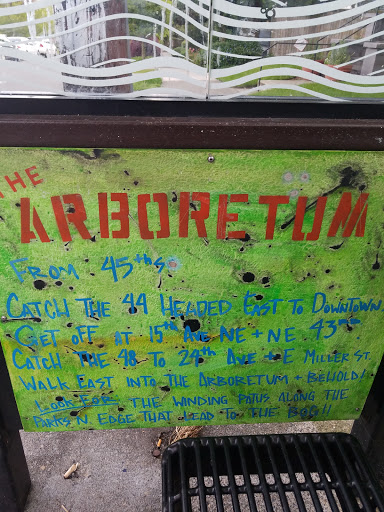 THE
ARBORETUM
FROM 45th St
CATCH THE 44 HEADED EAST TO DOWNTOWN.
GET OFF AT 15th AVE NE + NE 43rd
CATCH THE 48 TO 24th AVE + E MILLER ST.
WALK EAST INTO THE ARBORETUM + BEHOLD!
LOOK FOR THE WINDING PATHS ALONG THE
PARKS N EDGE THAT LEAD TO THE BOG!!